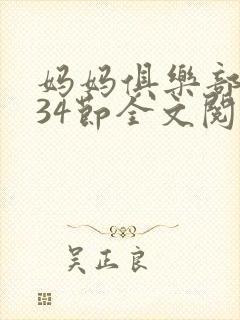 妈妈俱樂部
34節全文閱
吴正良